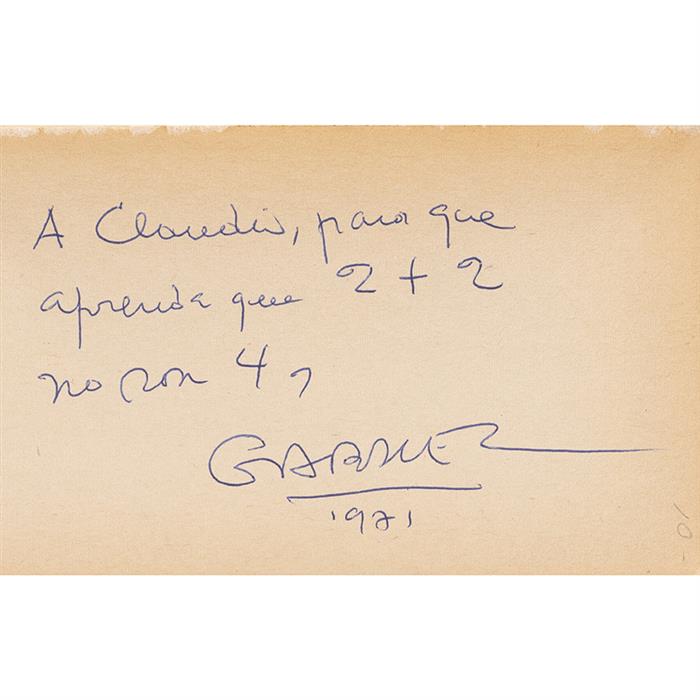 A Claudio, para que
aprenda que 2 + 2
no son 4,
GABRIEL
1971